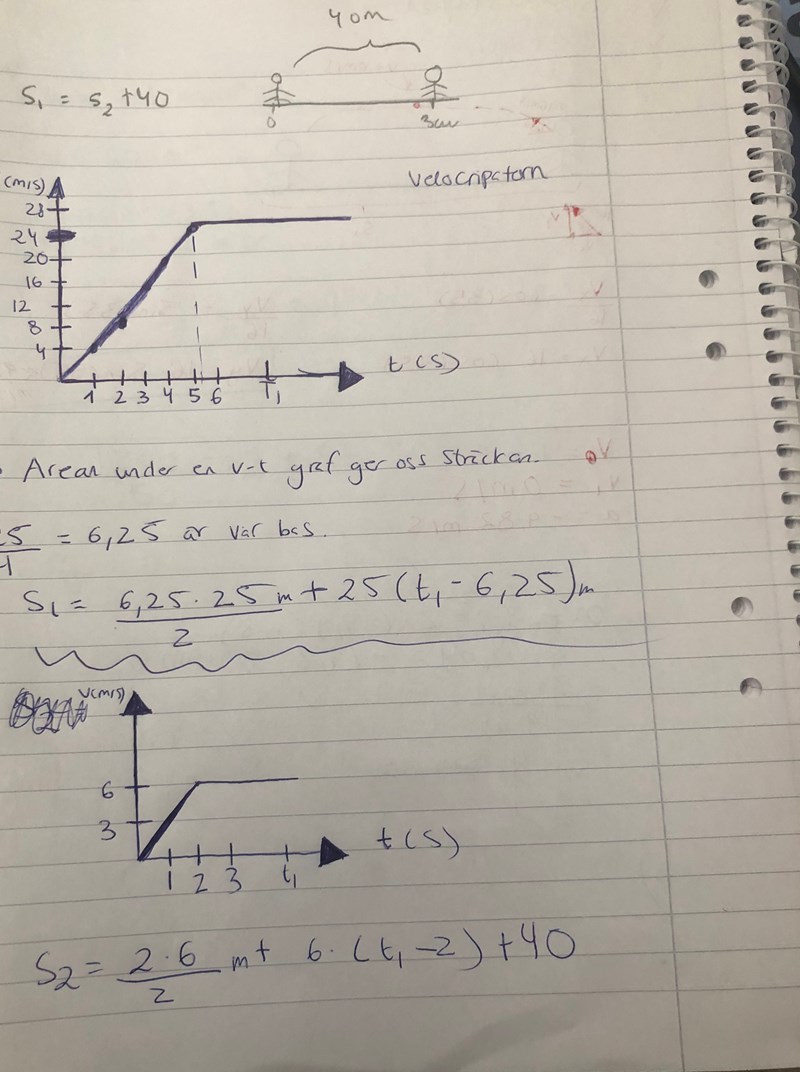 40m
S₁ = S₂ + 40
0
(m/s)
Velocriptorn
28
24
20
16
12
8
4
1 2 3 4 5 6 T₁
t (s)
Arean under en v-t graf ger oss sträckan.
25/4 = 6,25 är vår bas.
S₁ = 6,25 · 25/2 m + 25 (t₁ - 6,25) m
V(m/s)
6
3
1 2 3 t₁
t (s)
S₂ = 2 · 6/2 m + 6 · (t₁ - 2) + 40